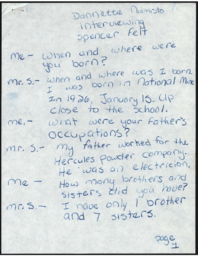 Dannette
interviewing
Spencer Felt
me - When and where were
you born?
Mr. S. - When and where was I born
I was born in National Mine
In 1926, January 15. Up
close to the school.
me. - What were your father's
occupations?
Mr. S. - My father worked for the
Hercules Powder company.
He was an electricion.
Me - How many brothers and
sisters did you have?
Mr. S. - I have only 1 brother
and 7 sisters.
page
1